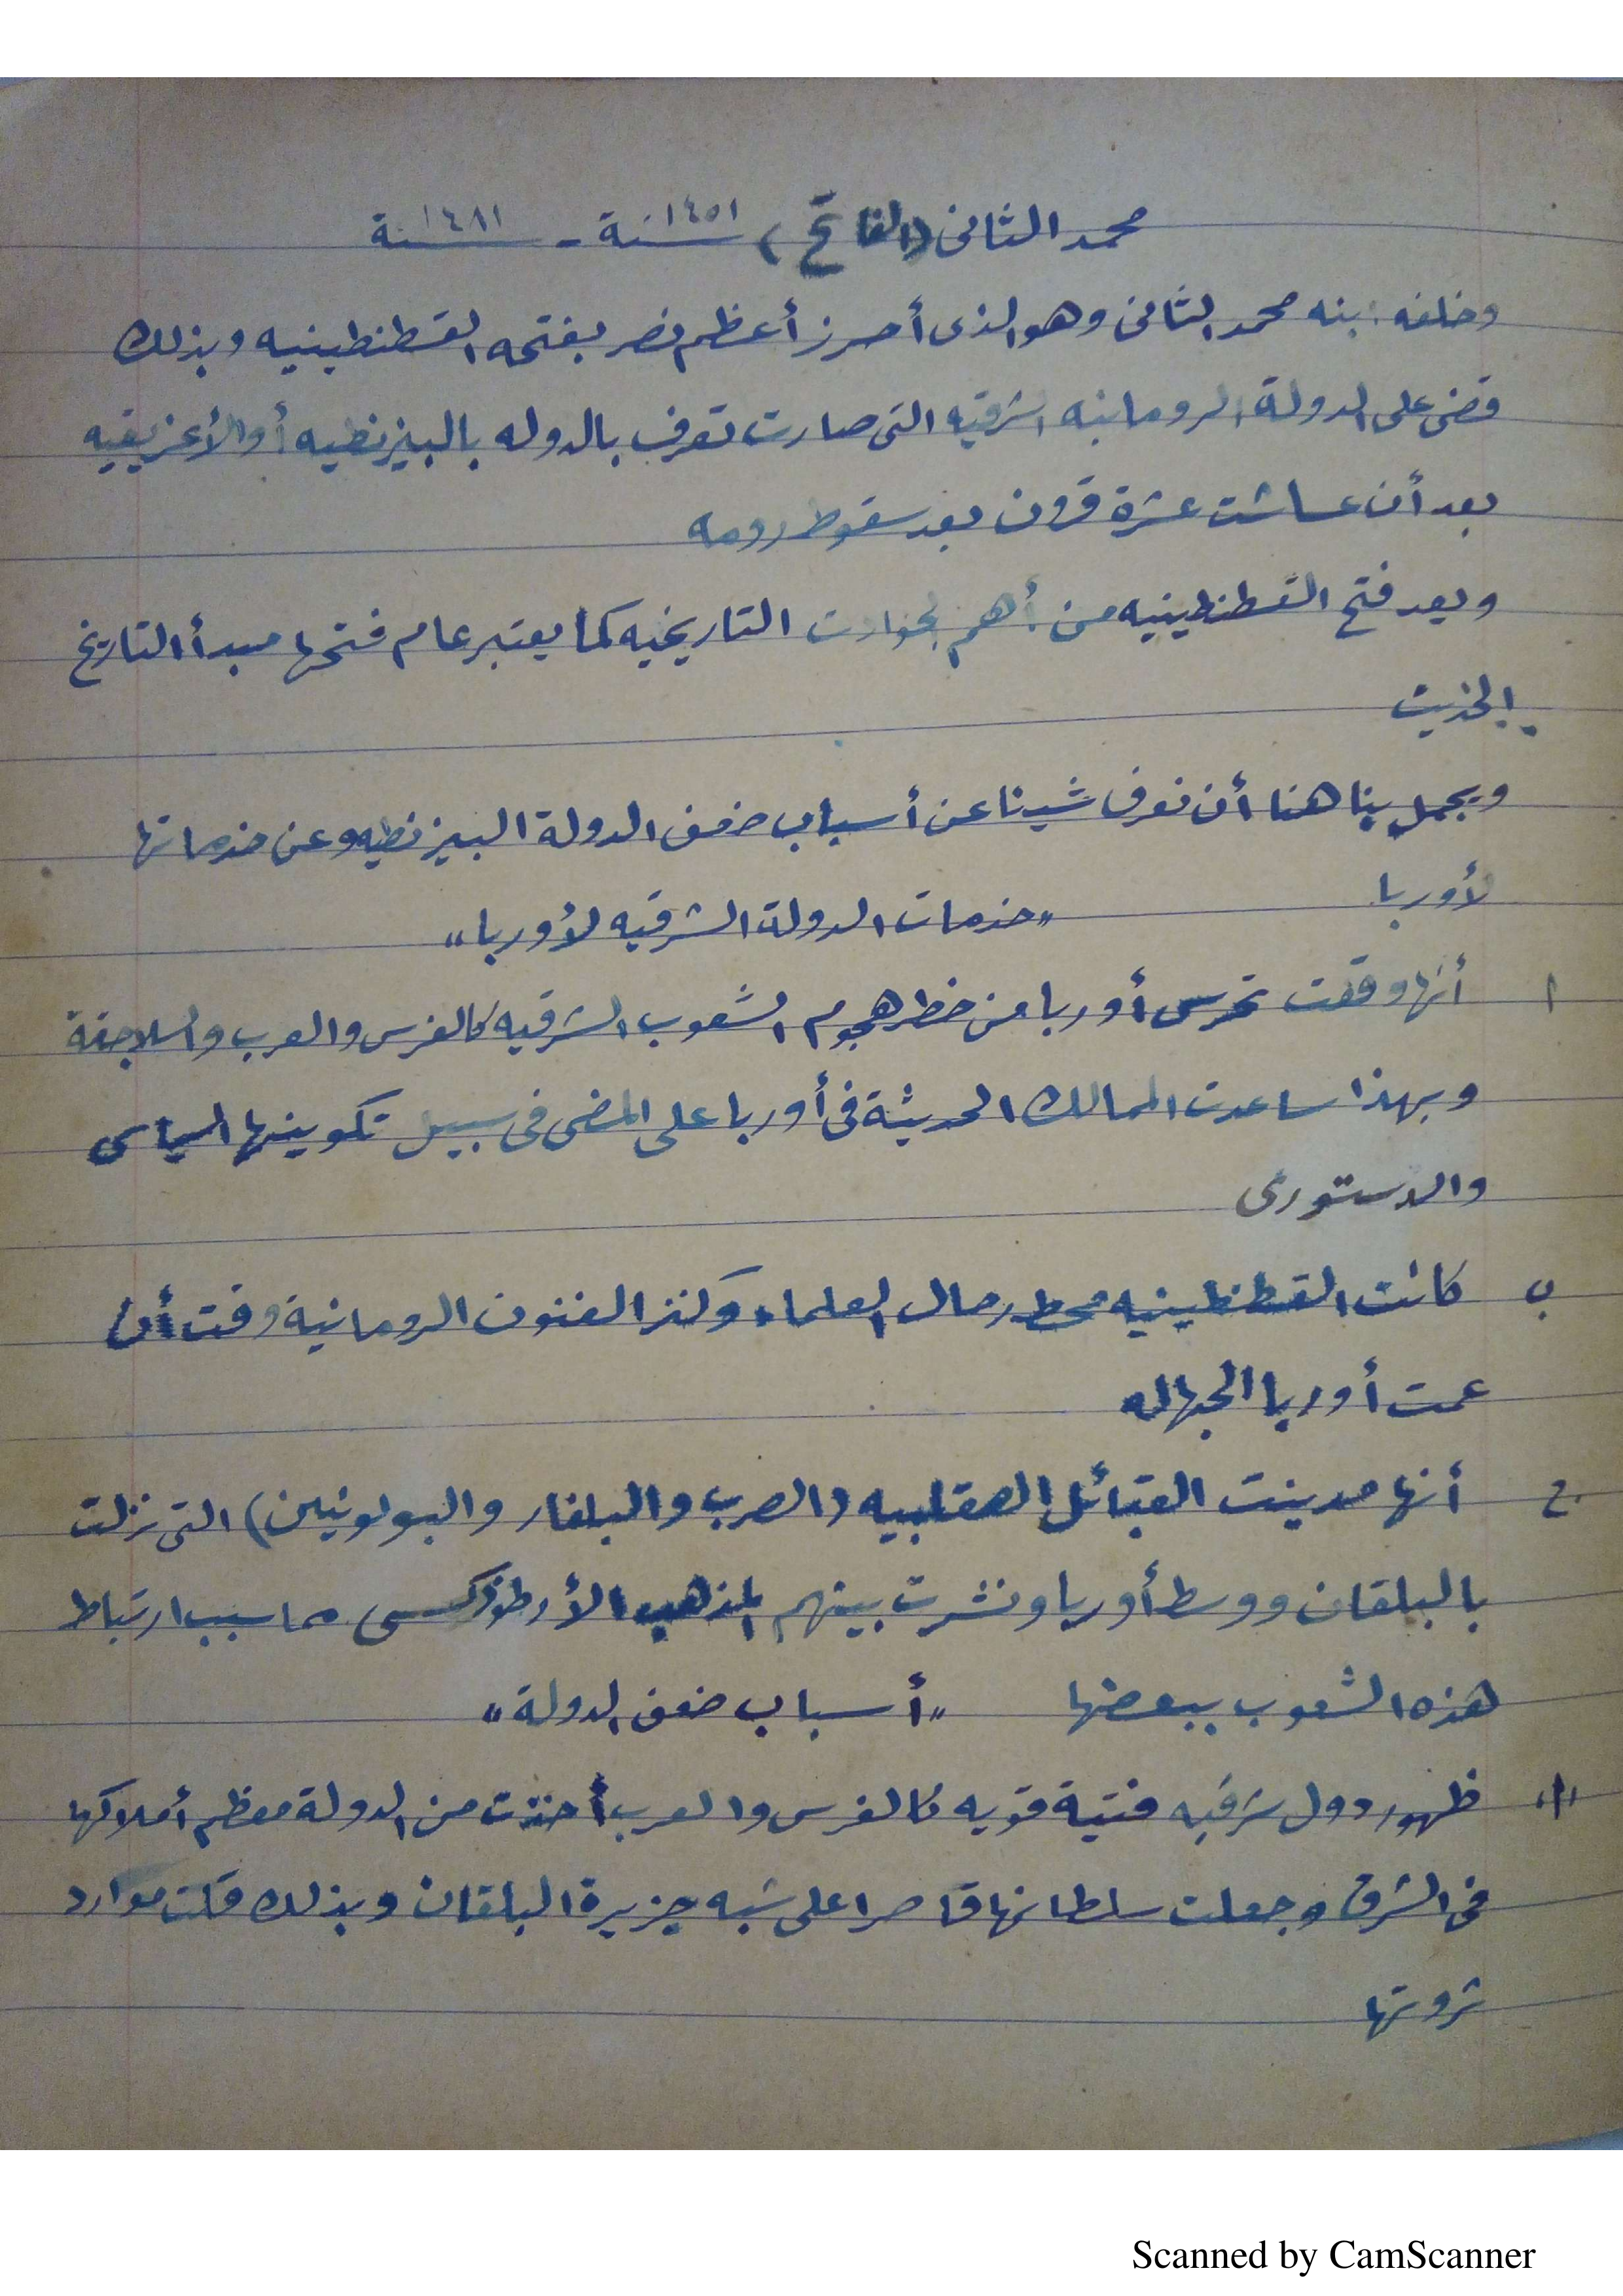 محمد الثانى (الفاتح) سنة ١٤٥١ - سنة ١٤٨١
وخلفه ابنه محمد الثانى وهو الذى أحرز أعظم نصر بفتحه القسطنطينيه وبذلك
قضى على الدولة الرومانيه الشرقيه التى صارت تعرف بالدوله بالبيزنطيه أو الأغريقيه
بعد أن عاشت عشرة قرون بعد سقوط رومه
ويعد فتح القسطنطينيه من أهم الحوادث التاريخيه كما يعتبر عام فتحها مبدأ التاريخ
الحديث
ويجمل بنا هنا أن نعرف شيئا عن أسباب ضعف الدولة البيزنطيه وعن خدماتها
لأوربا
"خدمات الدولة الشرقيه لأوربا"
ا أنها وقفت تحرس أوربا من خطر هجوم الشعوب الشرقيه كالفرس والعرب والسلاجقة
وبهذا ساعدت الممالك الحديثة فى أوربا على المضى فى سبيل تكوينها السياسى
والدستورى
ب كانت القسطنطينيه محط رحال العلماء وكنز الفنون الرومانية وقت أن
عمت أوربا الجهاله
ج أنها مدينت القبائل الصقلبيه (الصرب والبلغار والبولونيين) التى نزلت
بالبلقان ووسط أوربا ونشرت بينهم المذهب الأرطوذكسى مما سبب ارتباط
هذه الشعوب ببعضها "أسباب ضعف الدولة"
"ا" ظهور دول شرقيه فتية قويه كالفرس والعرب أخذت من الدولة معظم أملاكها
فى الشرق وجعلت سلطانها قاصرا على شبه جزيرة البلقان وبذلك قلت موارد
ثروتها
Scanned by CamScanner